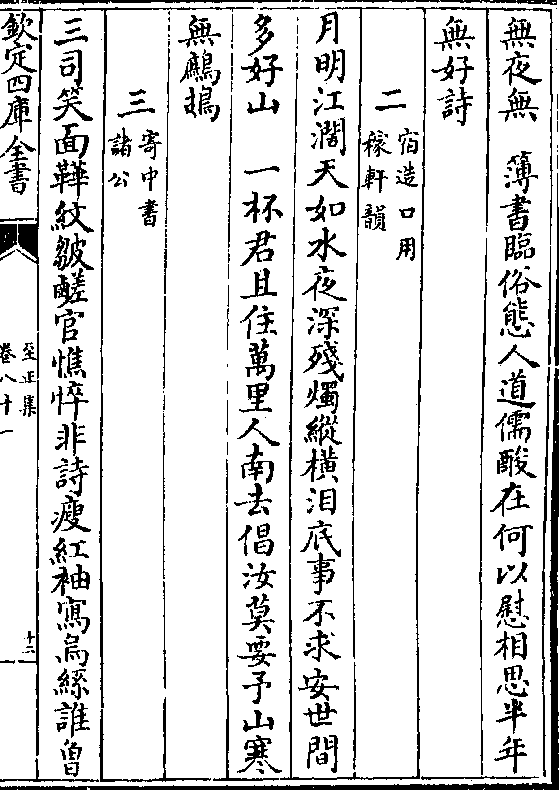 無夜無　簿書臨俗態人道儒酸在何以慰相思半年
無好詩
二宿造口用稼軒韻
月明江濶天如水夜深殘燭縱橫泪底事不求安世間
多好山　一杯君且住萬里人南去倡汝莫要予山寒
無鷓鴣
三寄中書諸公
三司笑面鞾紋皺鹺官憔悴非詩瘦紅袖寫烏絲誰曾
欽定四庫全書
至正集
卷八十一
十二